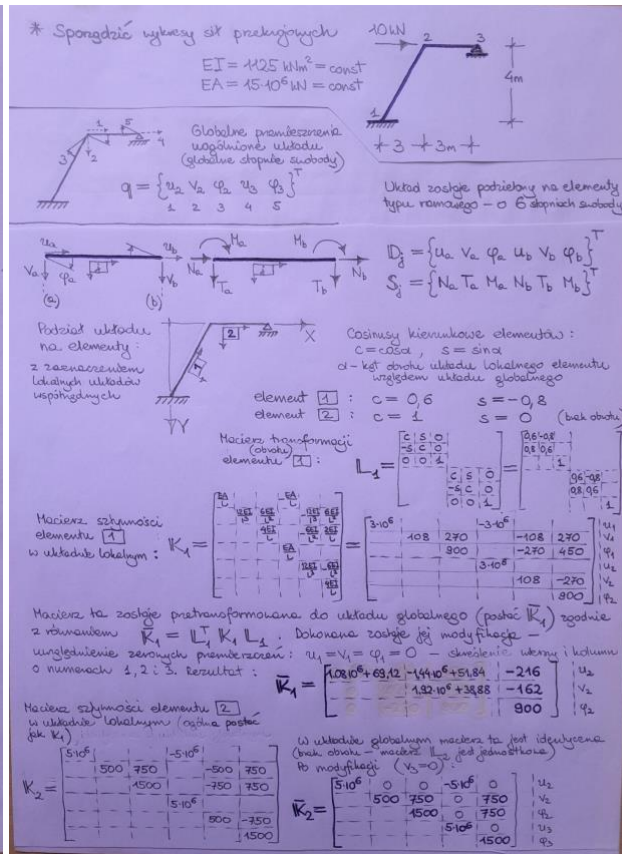 * Sporządzić wykresy sił przekrojowych
EI = 1125 kNm² = const
EA = 15·10⁶ kN = const
10 kN
2 3
4m
1
3 3m
Globalne przemieszczenia
uogólnione układu
(globalne stopnie swobody)
q = {u₂ v₂ φ₂ u₃ φ₃}ᵀ
1 2 3 4 5
1 5 4
3 2
Układ zostaje podzielony na elementy
typu ramowego – o 6 stopniach swobody
uₐ u_b Mₐ M_b
Vₐ φₐ 1 V_b Nₐ Tₐ 1 T_b N_b
(a) (b)
D_j = {uₐ vₐ φₐ u_b v_b φ_b}ᵀ
S_j = {Nₐ Tₐ Mₐ N_b T_b M_b}ᵀ
Podział układu
na elementy:
z zaznaczeniem
lokalnych układów
współrzędnych
2 X
1
Y
Cosinusy kierunkowe elementów:
c = cosα, s = sinα
α – kąt obrotu układu lokalnego elementu
względem układu globalnego
element 1 : c = 0,6 s = -0,8
element 2 : c = 1 s = 0 (brak obrotu)
Macierz transformacji
(obrotu)
elementu 1 :
L₁ =
c s 0
-s c 0
0 0 1
c s 0
-s c 0
0 0 1
=
0,6 -0,8
0,8 0,6
1
0,6 -0,8
0,8 0,6
1
Macierz sztywności
elementu 1
w układzie lokalnym :
K₁ =
EA/L -EA/L
12EI/L³ 6EI/L² 12EI/L³ 6EI/L²
4EI/L 6EI/L² 2EI/L
EA/L
12EI/L³ 6EI/L²
4EI/L
=
3·10⁶ -3·10⁶ u₁
108 270 -108 270 v₁
900 -270 450 φ₁
3·10⁶ u₂
108 -270 v₂
900 φ₂
Macierz ta zostaje przetransformowana do układu globalnego (postać K̄₁) zgodnie
z równaniem K̄₁ = L₁ᵀ K₁ L₁. Dokonana zostaje jej modyfikacja –
uwzględnienie zerowych przemieszczeń: u₁ = v₁ = φ₁ = 0 – skreślenie wierszy i kolumn
o numerach 1, 2 i 3. Rezultat :
K̄₁ =
1.08·10⁶+69,12 -1,44·10⁶+51,84 -216 u₂
1.92·10⁶+38,88 -162 v₂
900 φ₂
Macierz sztywności elementu 2
w układzie lokalnym (ogólna postać
jak K₁)
K₂ =
5·10⁶ -5·10⁶
500 750 -500 750
1500 -750 750
5·10⁶
500 -750
1500
W układzie globalnym macierz ta jest identyczna
(brak obrotu – macierz L₂ jest jednostkowa)
Po modyfikacji (v₃=0) :
K̄₂ =
5·10⁶ 0 0 -5·10⁶ 0 u₂
500 750 0 750 v₂
1500 0 750 φ₂
5·10⁶ 0 u₃
1500 φ₃